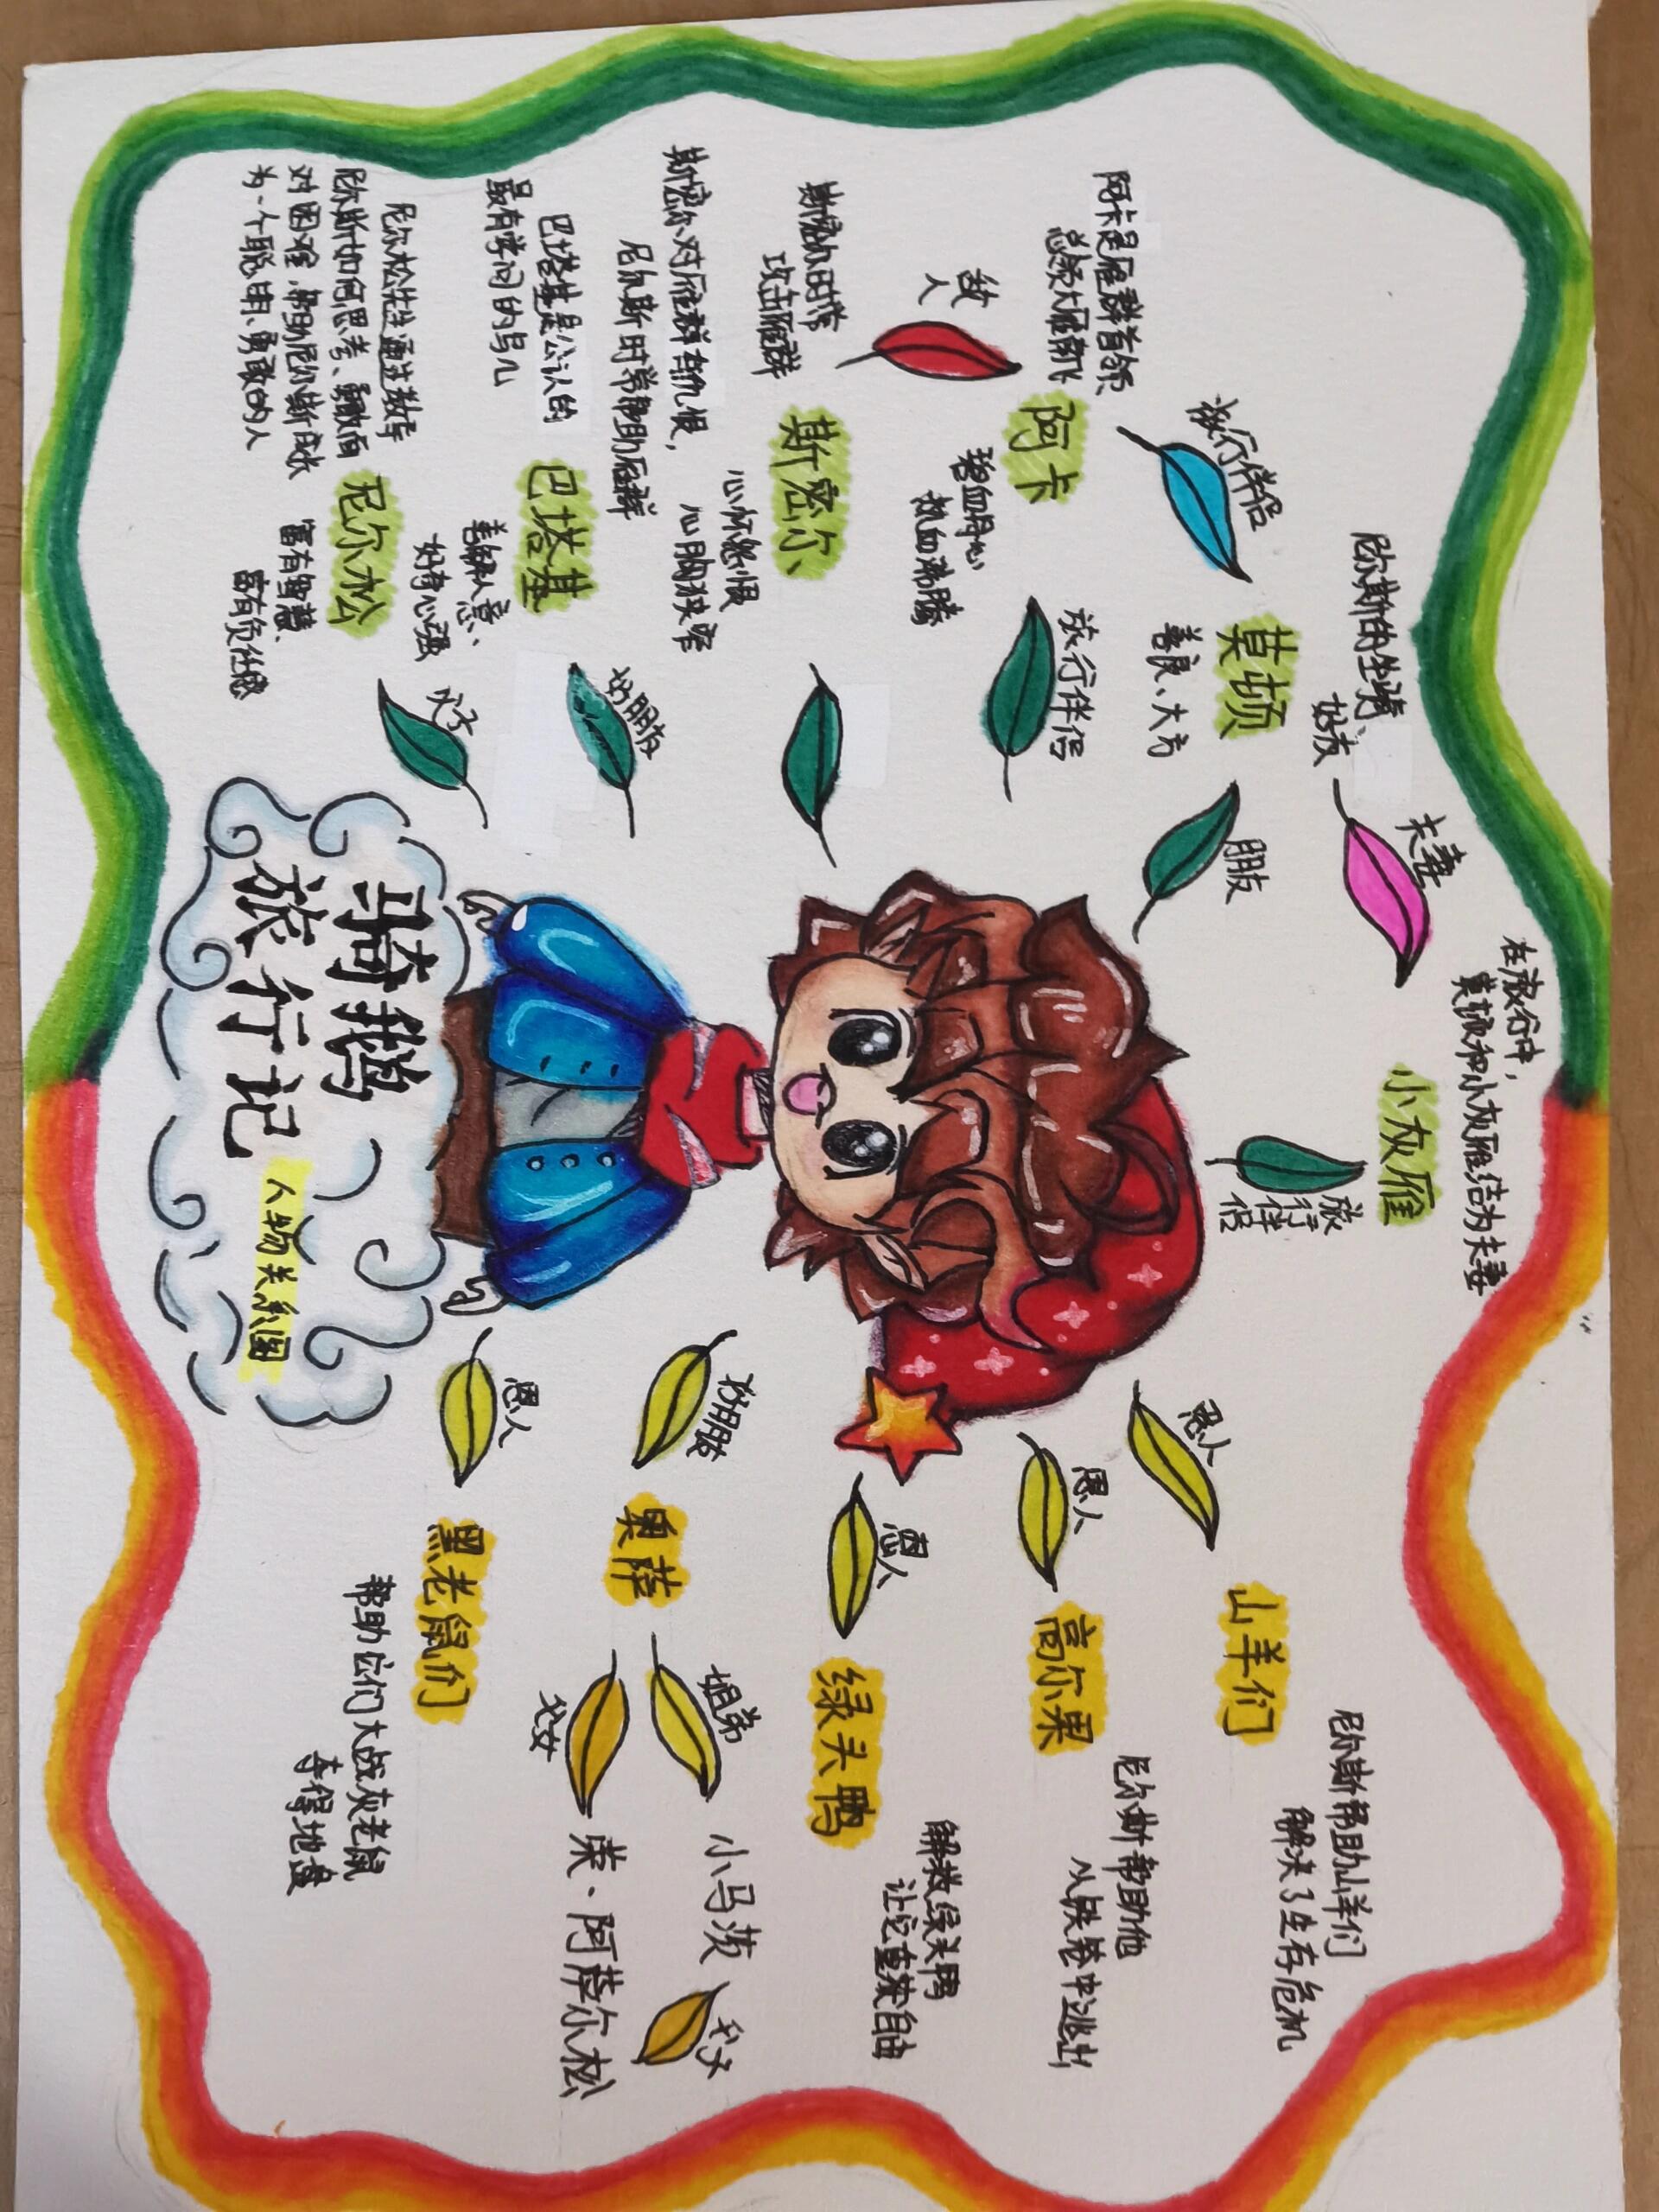 在旅行中，
莫顿和小灰雁结为夫妻
夫妻
小灰雁
旅行伴侣
尼尔斯的坐骑、
好友
莫顿
善良、大方
朋友
旅行伴侣
阿卡是雁群首领，
总领大雁南飞
阿卡
碧血丹心
热血沸腾
旅行伴侣
敌人
斯密尔时常
攻击雁群
斯密尔
心怀怨恨
心胸狭窄
斯密尔对雁群有仇恨，
尼尔斯时常帮助雁群
巴塔基是公认的
最有学问的鸟儿
巴塔基
善解人意、
好奇心强
好朋友
尼尔松先生通过教导
尼尔斯如何思考、勇敢面
对困难，帮助尼尔斯成长
为一个聪明、勇敢的人
尼尔松
富有智慧、
富有责任感
父子
恩人
山羊们
尼尔斯帮助山羊们
解决了生存危机
恩人
高尔果
尼尔斯帮助他
从铁卷中逃出
恩人
绿头鸭
解救绿头鸭
让它重获自由
好朋友
奥萨
姐弟
小马茨
父子
父女
荣·阿萨尔松
恩人
黑老鼠们
帮助它们大战灰老鼠
夺得地盘
骑鹅
旅行记
人物关系图